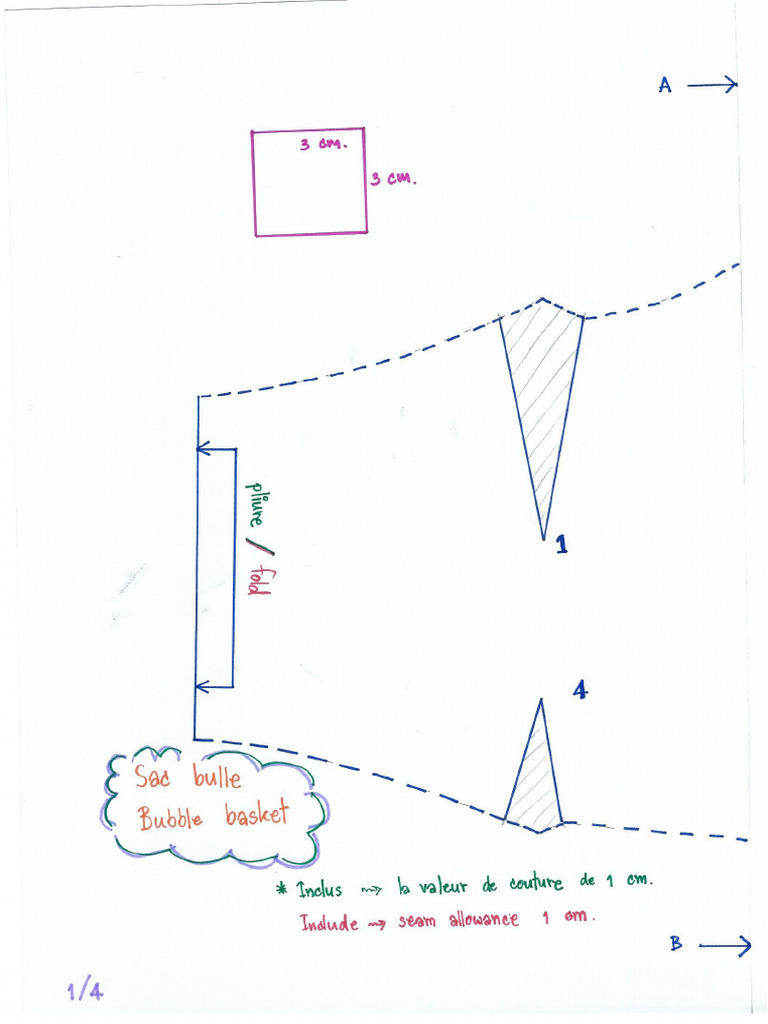 A
3 cm.
3 cm.
1
pliure / fold
4
Sac bulle
Bubble basket
* Inclus → la valeur de couture de 1 cm.
Include → seam allowance 1 cm.
B
1/4